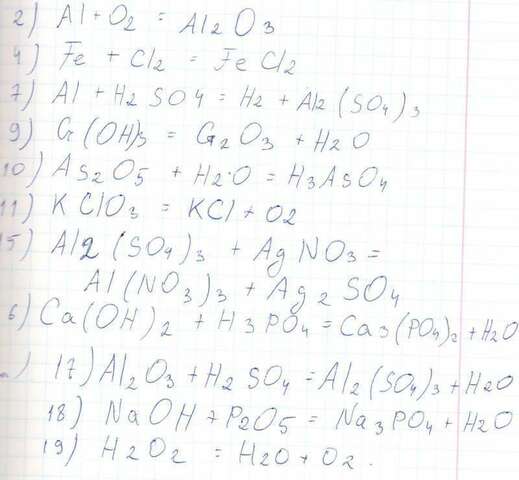 2) Al + O2 = Al2O3
4) Fe + Cl2 = FeCl2
7) Al + H2SO4 = H2 + Al2(SO4)3
9) Cr(OH)3 = Cr2O3 + H2O
10) As2O5 + H2O = H3AsO4
11) KClO3 = KCl + O2
15) Al2(SO4)3 + AgNO3 =
Al(NO3)3 + Ag2SO4
6) Ca(OH)2 + H3PO4 = Ca3(PO4)2 + H2O
) 17) Al2O3 + H2SO4 = Al2(SO4)3 + H2O
18) NaOH + P2O5 = Na3PO4 + H2O
19) H2O2 = H2O + O2.